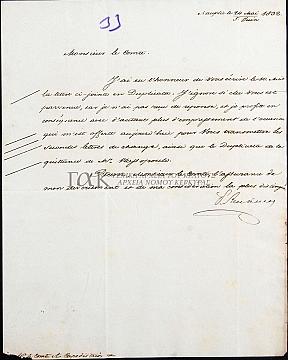 Nauplie le 24 Mai 1832.
5 Juin
Monsieur le Comte.
J'ai eu l'honneur de Vous écrire le
la lettre ci-jointe en Duplicata. J'ignore si elle Vous est
parvenue, car je n'ai pas reçu de réponse, et je profite
avec d'autant plus d'empressement de l'occasion
qui m'est offerte aujourd'hui pour Vous transmettre les
secondes lettres de change, ainsi que le Duplicata de la
quittance de Mr.
ΓΑΚ
ΑΡΧΕΙΑ ΝΟΜΟΥ ΚΕΡΚΥΡΑΣ
Monsieur le Comte, l'assurance de
mon dévouement et de ma considération la plus